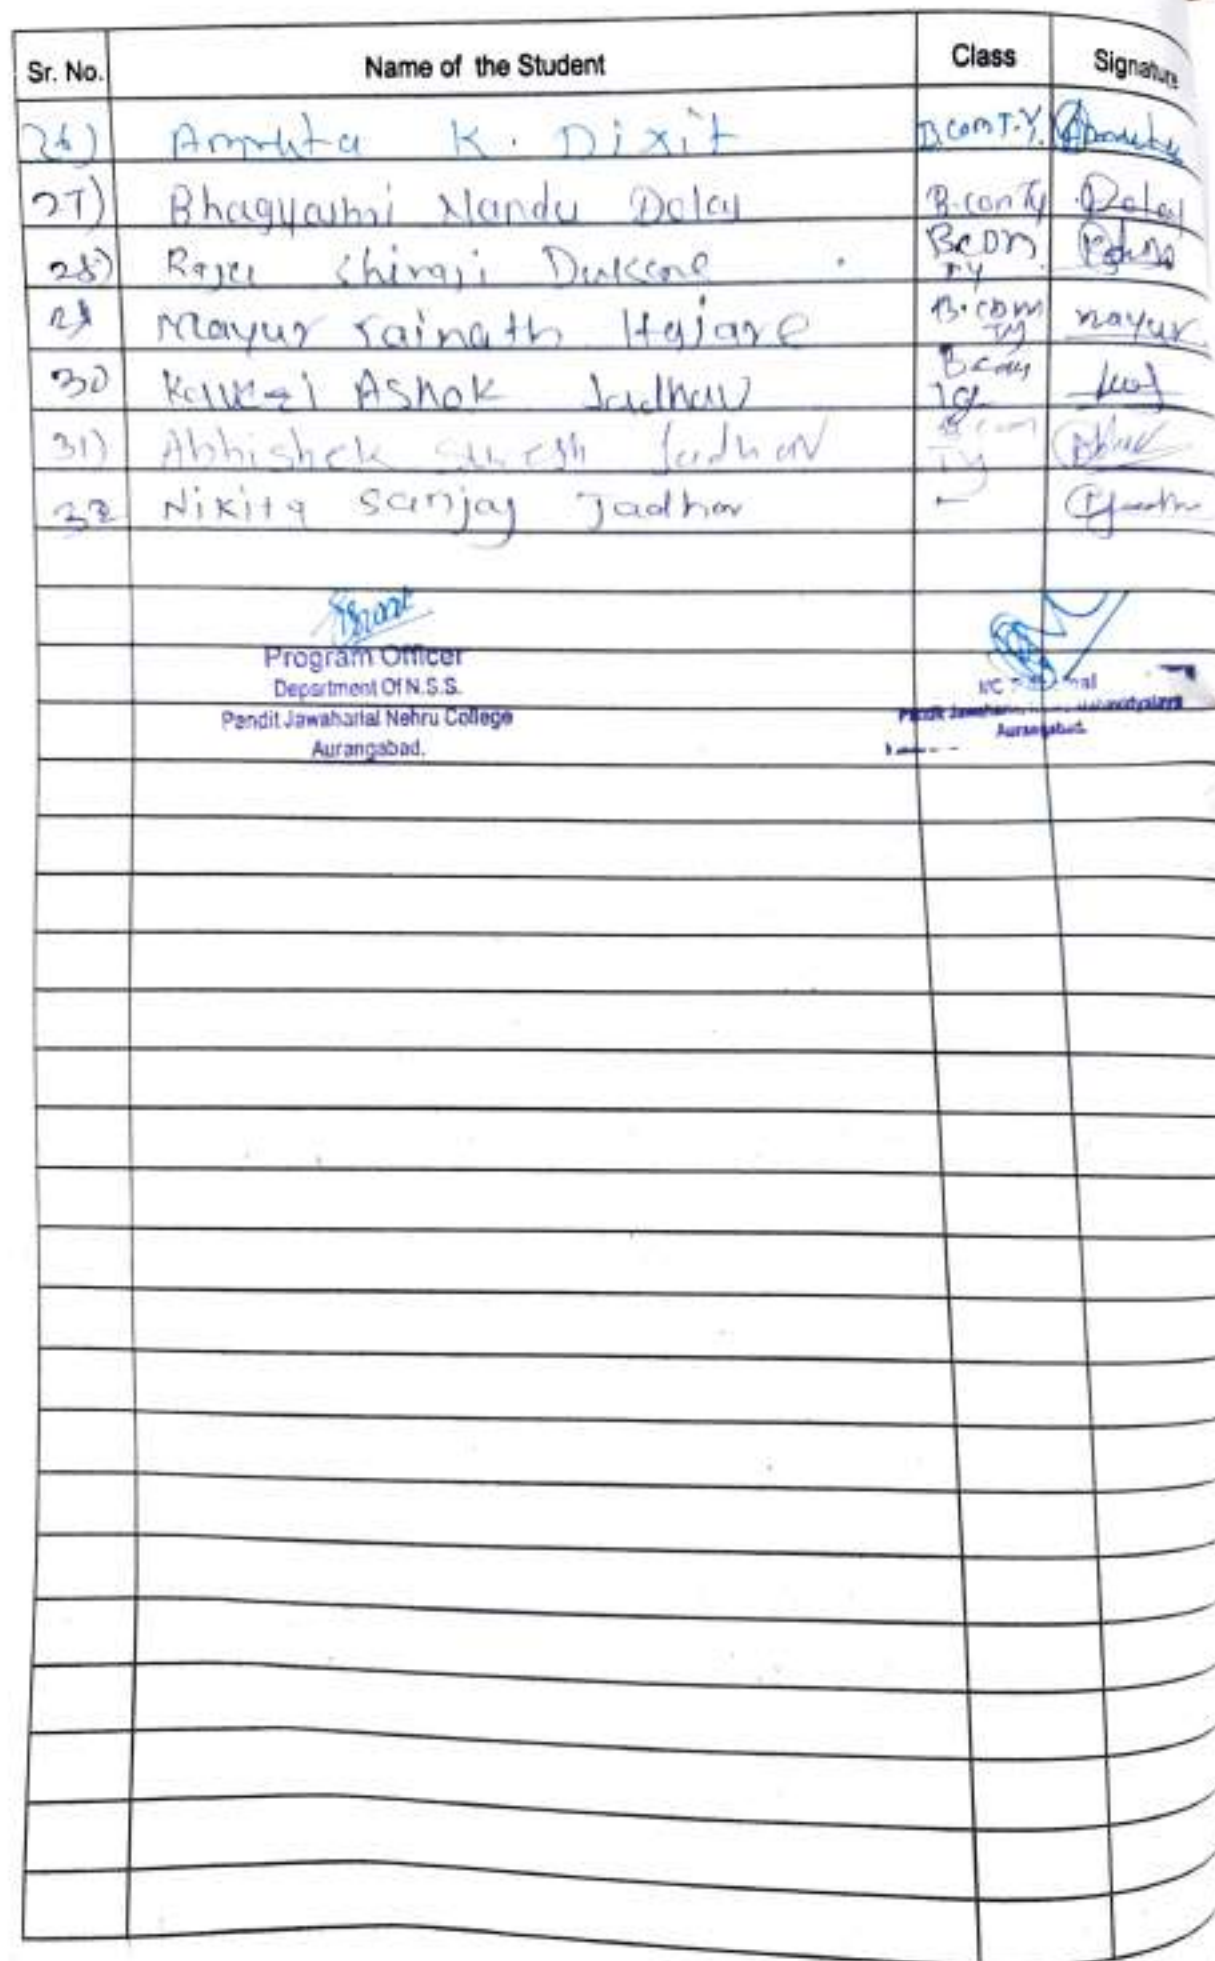 Sr. No. Name of the Student Class Signature
26) Amruta K. Dixit B.com T.Y. Amruta
27) Bhagyashri Nandu Dalay B.com Ty Dalay
28) Raju Shivaji Bcom TY
29 Mayur sainath Hajare B.com Ty mayur
30 Ashok Jadhav Bcom Ty
31) Abhishek Suresh Jadhav B com TY
32 Nikita Sanjay Jadhav -
Program Officer
Department Of N.S.S.
Pandit Jawaharlal Nehru College
Aurangabad.
I/C Principal
Pandit Jawaharlal Nehru Mahavidyalaya
Aurangabad.